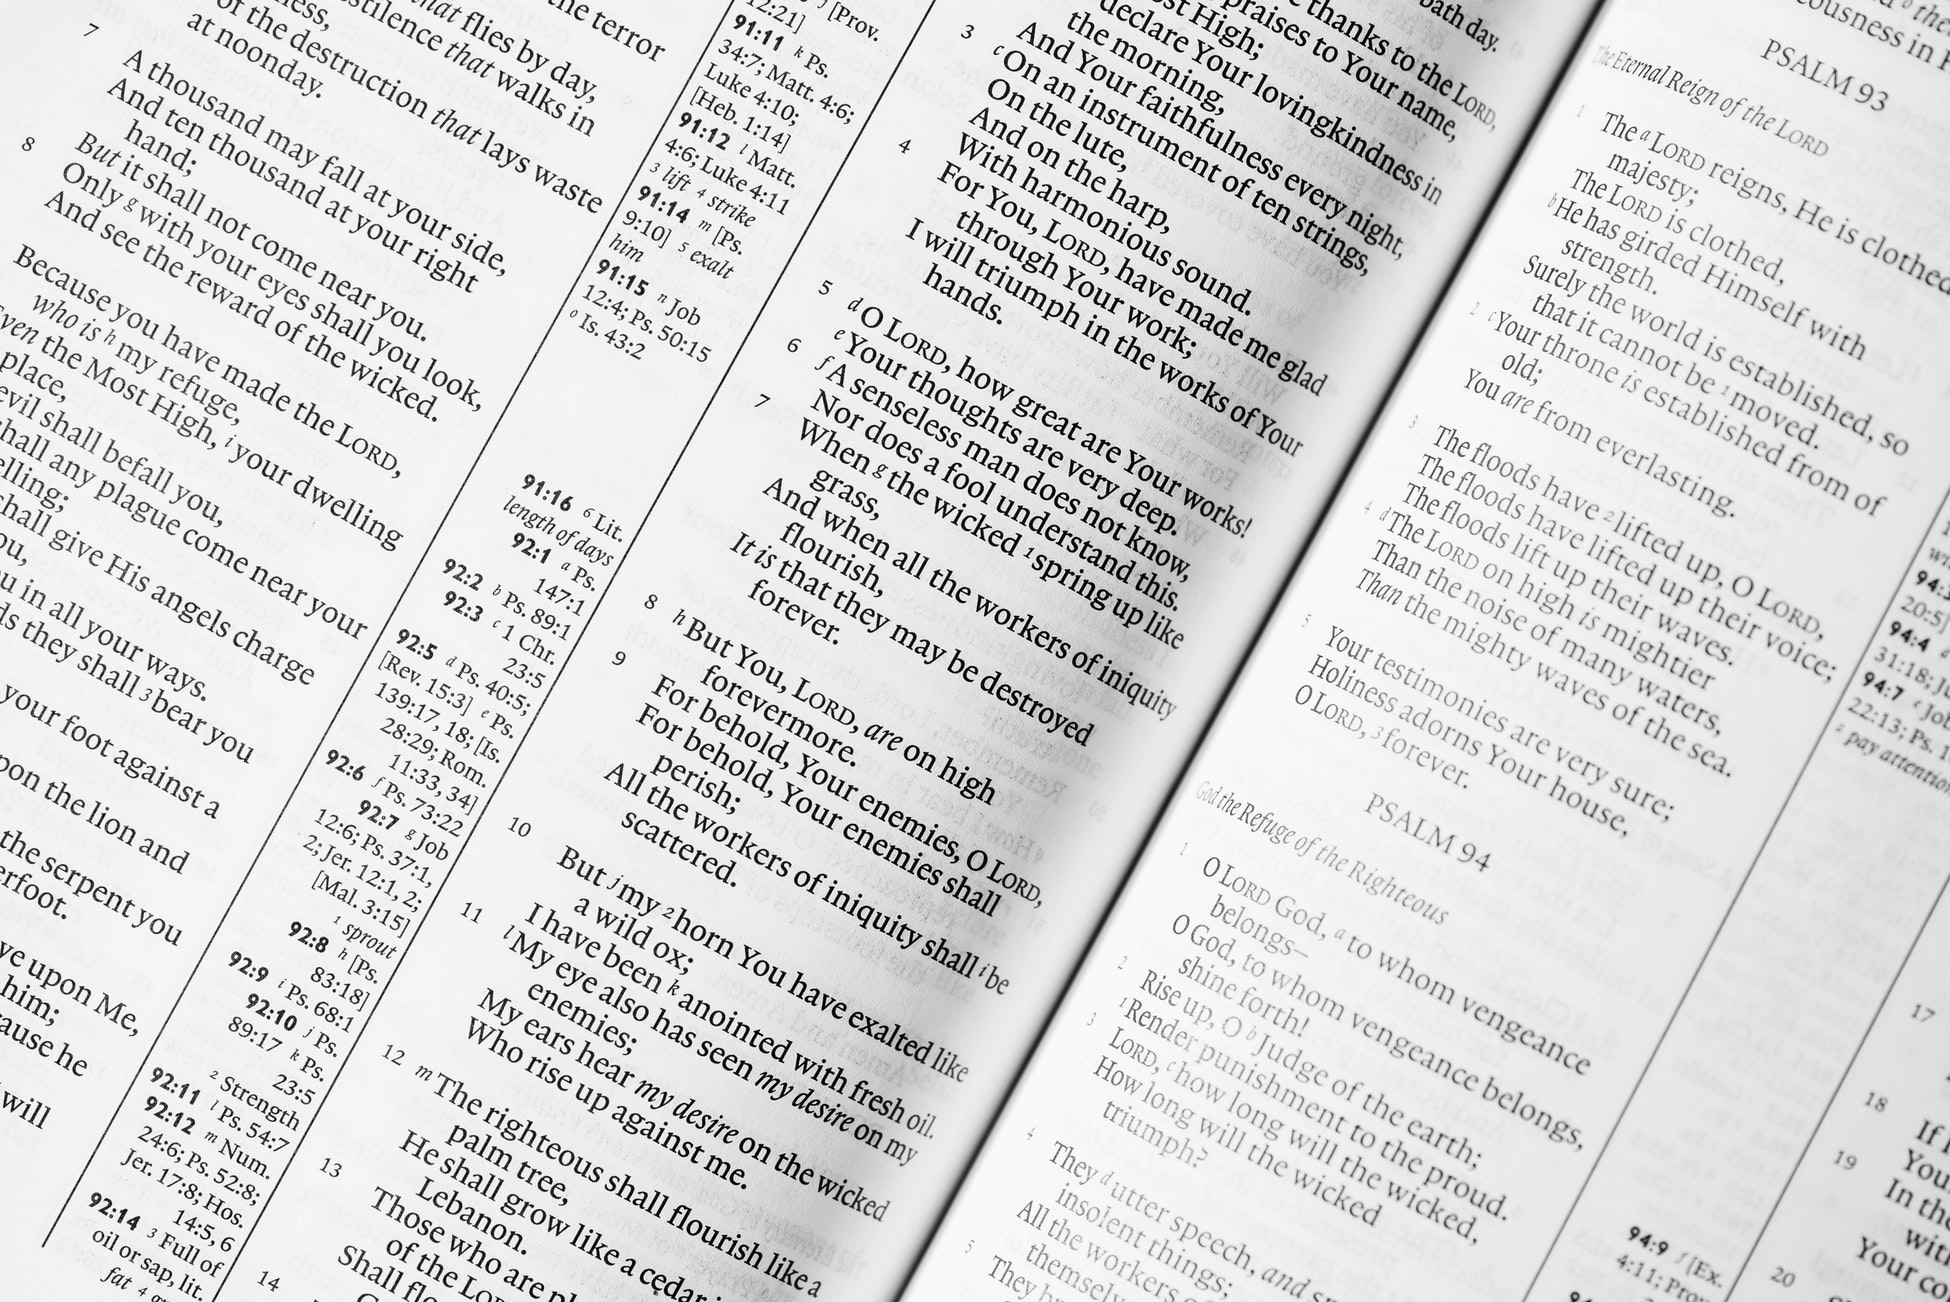 the terror
that flies by day,
that walks in
of the destruction that lays waste
at noonday.
7
A thousand may fall at your side,
And ten thousand at your right
hand;
But it shall not come near you.
8
Only g with your eyes shall you look,
And see the reward of the wicked.
Because you have made the LORD,
who is h my refuge,
the Most High, i your dwelling
place,
evil shall befall you,
any plague come near your
give His angels charge
in all your ways.
they shall 3 bear you
your foot against a
the lion and
the serpent you
upon Me,
him;
he
will
12:21] [Prov.
91:11 k Ps.
34:7; Matt. 4:6;
Luke 4:10;
[Heb. 1:14]
91:12 l Matt.
4:6; Luke 4:11
3 lift 4 strike
91:14 m [Ps.
9:10] 5 exalt
him
91:15 n Job
12:4; Ps. 50:15
o Is. 43:2
91:16 6 Lit.
length of days
92:1 a Ps.
147:1
92:2 b Ps. 89:1
92:3 c 1 Chr.
23:5
92:5 d Ps. 40:5;
[Rev. 15:3] e Ps.
139:17, 18; [Is.
28:29; Rom.
11:33, 34]
92:6 f Ps. 73:22
92:7 g Job
12:6; Ps. 37:1,
2; Jer. 12:1, 2;
[Mal. 3:15]
1 sprout
92:8 h [Ps.
83:18]
92:9 i Ps. 68:1
92:10 j Ps.
89:17 k Ps.
23:5
2 Strength
92:11 l Ps. 54:7
92:12 m Num.
24:6; Ps. 52:8;
Jer. 17:8; Hos.
14:5, 6
92:14 3 Full of
oil or sap, lit.
fat 4
day.
thanks to the LORD,
praises to Your name,
Most High;
declare Your lovingkindness in
the morning,
And Your faithfulness every night,
3 c On an instrument of ten strings,
On the lute,
And on the harp,
With harmonious sound.
4 For You, LORD, have made me glad
through Your work;
I will triumph in the works of Your
hands.
5 d O LORD, how great are Your works!
e Your thoughts are very deep.
6 f A senseless man does not know,
Nor does a fool understand this.
7 When g the wicked 1 spring up like
grass,
And when all the workers of iniquity
flourish,
It is that they may be destroyed
forever.
8 h But You, LORD, are on high
forevermore.
9 For behold, Your enemies, O LORD,
For behold, Your enemies shall
perish;
All the workers of iniquity shall i be
scattered.
10 But j my 2 horn You have exalted like
a wild ox;
I have been k anointed with fresh oil.
11 l My eye also has seen my desire on my
enemies;
My ears hear my desire on the wicked
Who rise up against me.
12 m The righteous shall flourish like a
palm tree,
He shall grow like a cedar
Lebanon.
13 Those who are
of the LORD
Shall
14
PSALM 93
The Eternal Reign of the LORD
1 The a LORD reigns, He is clothed
majesty;
The LORD is clothed,
b He has girded Himself with
strength.
Surely the world is established, so
that it cannot be 1 moved.
2 c Your throne is established from of
old;
You are from everlasting.
3 The floods have 2 lifted up, O LORD,
The floods have lifted up their voice;
The floods lift up their waves.
4 d The LORD on high is mightier
Than the noise of many waters,
Than the mighty waves of the sea.
5 Your testimonies are very sure;
Holiness adorns Your house,
O LORD, 3 forever.
PSALM 94
God the Refuge of the Righteous
1 O LORD God, a to whom vengeance
belongs—
O God, to whom vengeance belongs,
shine forth!
2 Rise up, O b Judge of the earth;
1 Render punishment to the proud.
3 LORD, c how long will the wicked,
How long will the wicked
triumph?
4 They d utter speech, and
insolent things;
All the workers
5 They
20:5]
94:4
31:18;
94:7 e Job
22:13; Ps.
2 pay attention
94:9 f [Ex.
4:11;
17
18
If
19
In the
20